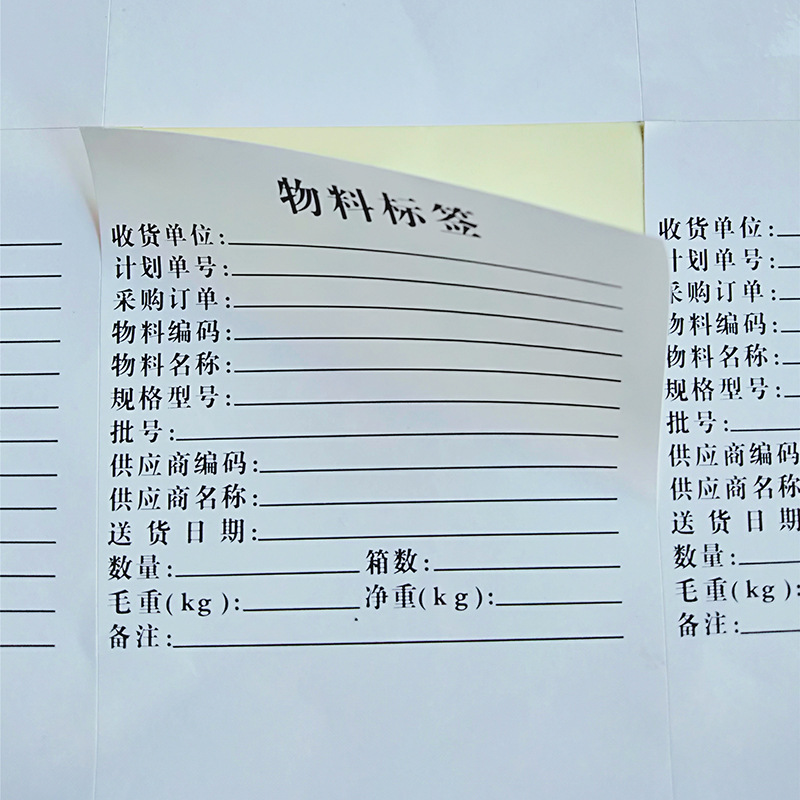 物料标签
收货单位:
计划单号:
采购订单:
物料编码:
物料名称:
规格型号:
批号:
供应商编码:
供应商名称:
送货日期:
数量: 箱数:
毛重(kg): 净重(kg):
备注:
收货单位:
计划单号:
采购订单:
物料编码:
物料名称:
规格型号:
批号:
供应商编码
供应商名称
送货日期
数量:
毛重(kg):
备注: